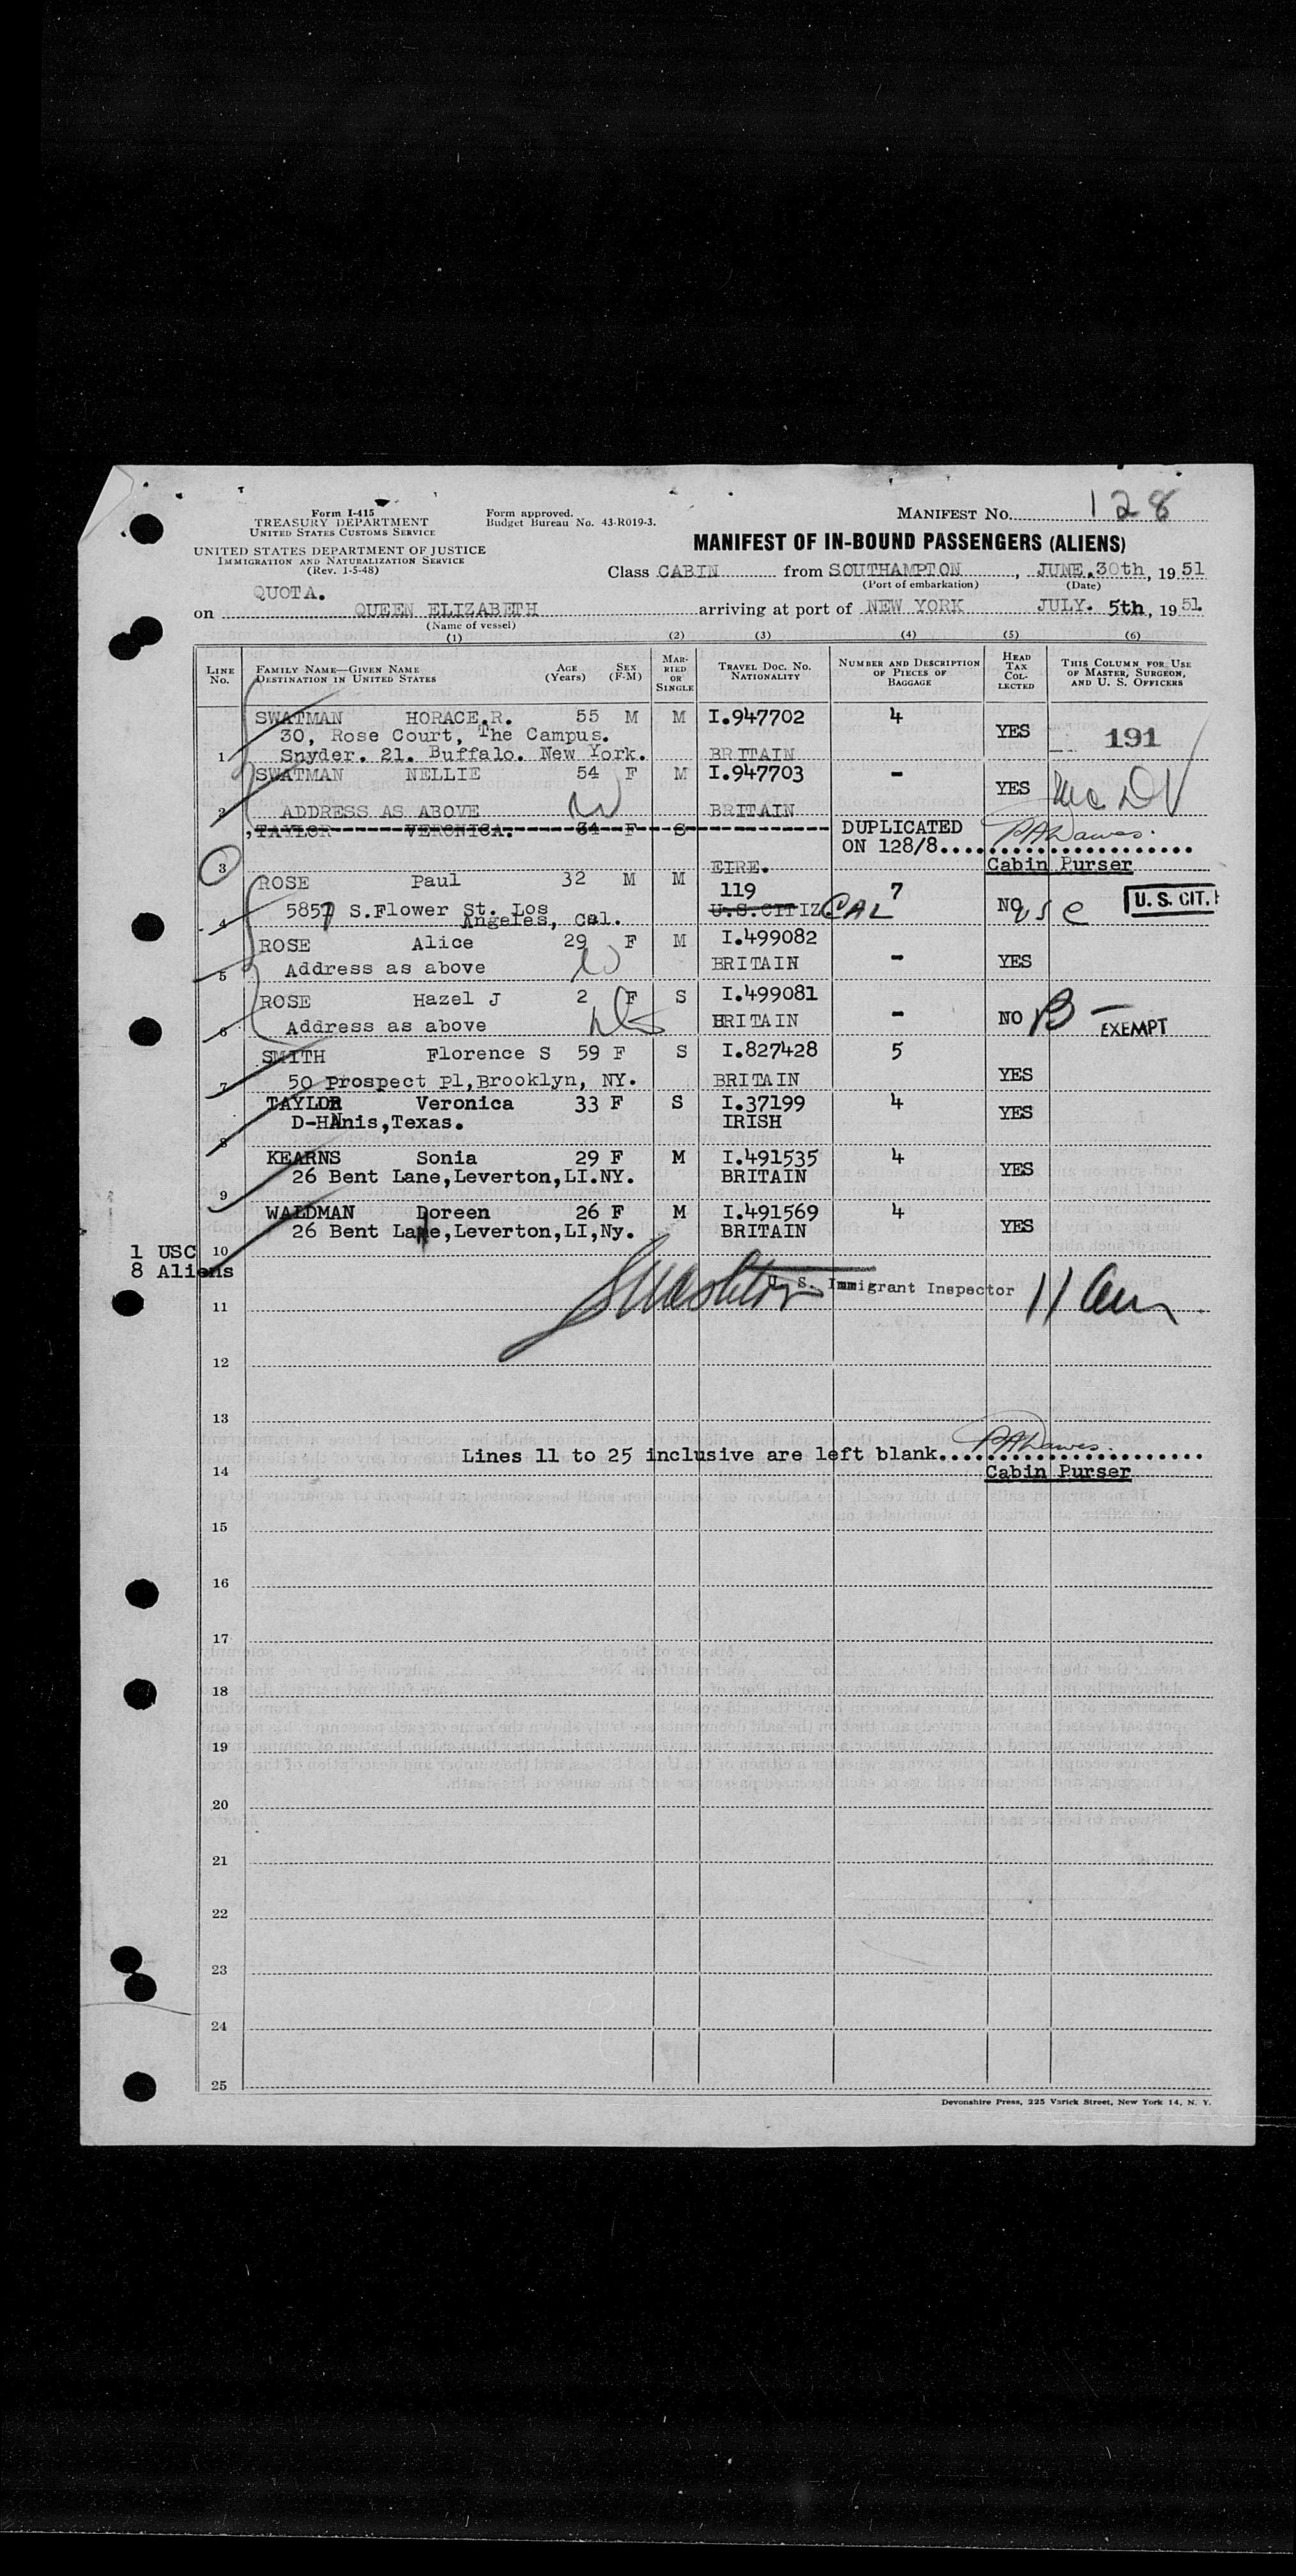 Form I-415
TREASURY DEPARTMENT
UNITED STATES CUSTOMS SERVICE
Form approved.
Budget Bureau No. 43-R019-3.
MANIFEST NO. 128
UNITED STATES DEPARTMENT OF JUSTICE
IMMIGRATION AND NATURALIZATION SERVICE
(Rev. 1-5-48)
MANIFEST OF IN-BOUND PASSENGERS (ALIENS)
Class CABIN from SOUTHAMPTON, JUNE.30th, 1951
(Port of embarkation) (Date)
QUOTA.
on QUEEN ELIZABETH arriving at port of NEW YORK JULY. 5th, 1951.
(Name of vessel)
(1) (2) (3) (4) (5) (6)
LINE No. FAMILY NAME—GIVEN NAME DESTINATION IN UNITED STATES AGE (Years) SEX (F-M) MARRIED OR SINGLE TRAVEL DOC. NO. NATIONALITY NUMBER AND DESCRIPTION OF PIECES OF BAGGAGE HEAD TAX COLLECTED THIS COLUMN FOR USE OF MASTER, SURGEON, AND U. S. OFFICERS
SWATMAN HORACE.R. 55 M M I.947702 4
30, Rose Court, The Campus. YES 191
1 Snyder. 21. Buffalo. New York. BRITAIN
SWATMAN NELLIE 54 F M I.947703 - YES
2 ADDRESS AS ABOVE BRITAIN
TAYLOR VERONICA. 34 F S DUPLICATED
ON 128/8.... PADawes.
3 EIRE. Cabin Purser
ROSE Paul 32 M M 119 7
4 5857 S.Flower St. Los U.S.CITIZ CAL NO USC U. S. CIT.
Angeles, Cal.
ROSE Alice 29 F M I.499082
5 Address as above BRITAIN - YES
ROSE Hazel J 2 F S I.499081
6 Address as above BRITAIN - NO B- EXEMPT
SMITH Florence S 59 F S I.827428 5
7 50 Prospect Pl,Brooklyn, NY. BRITAIN YES
TAYLOR Veronica 33 F S I.37199 4 YES
8 D-HAnis,Texas. IRISH
KEARNS Sonia 29 F M I.491535 4
9 26 Bent Lane,Leverton,LI.NY. BRITAIN YES
WALDMAN Doreen 26 F M I.491569 4
10 26 Bent Lane,Leverton,LI,Ny. BRITAIN YES
1 USC
8 Aliens
U. S. Immigrant Inspector
11
12
13
Lines 11 to 25 inclusive are left blank. PADawes.
14 Cabin Purser
15
16
17
18
19
20
21
22
23
24
25
Devonshire Press, 225 Varick Street, New York 14, N. Y.